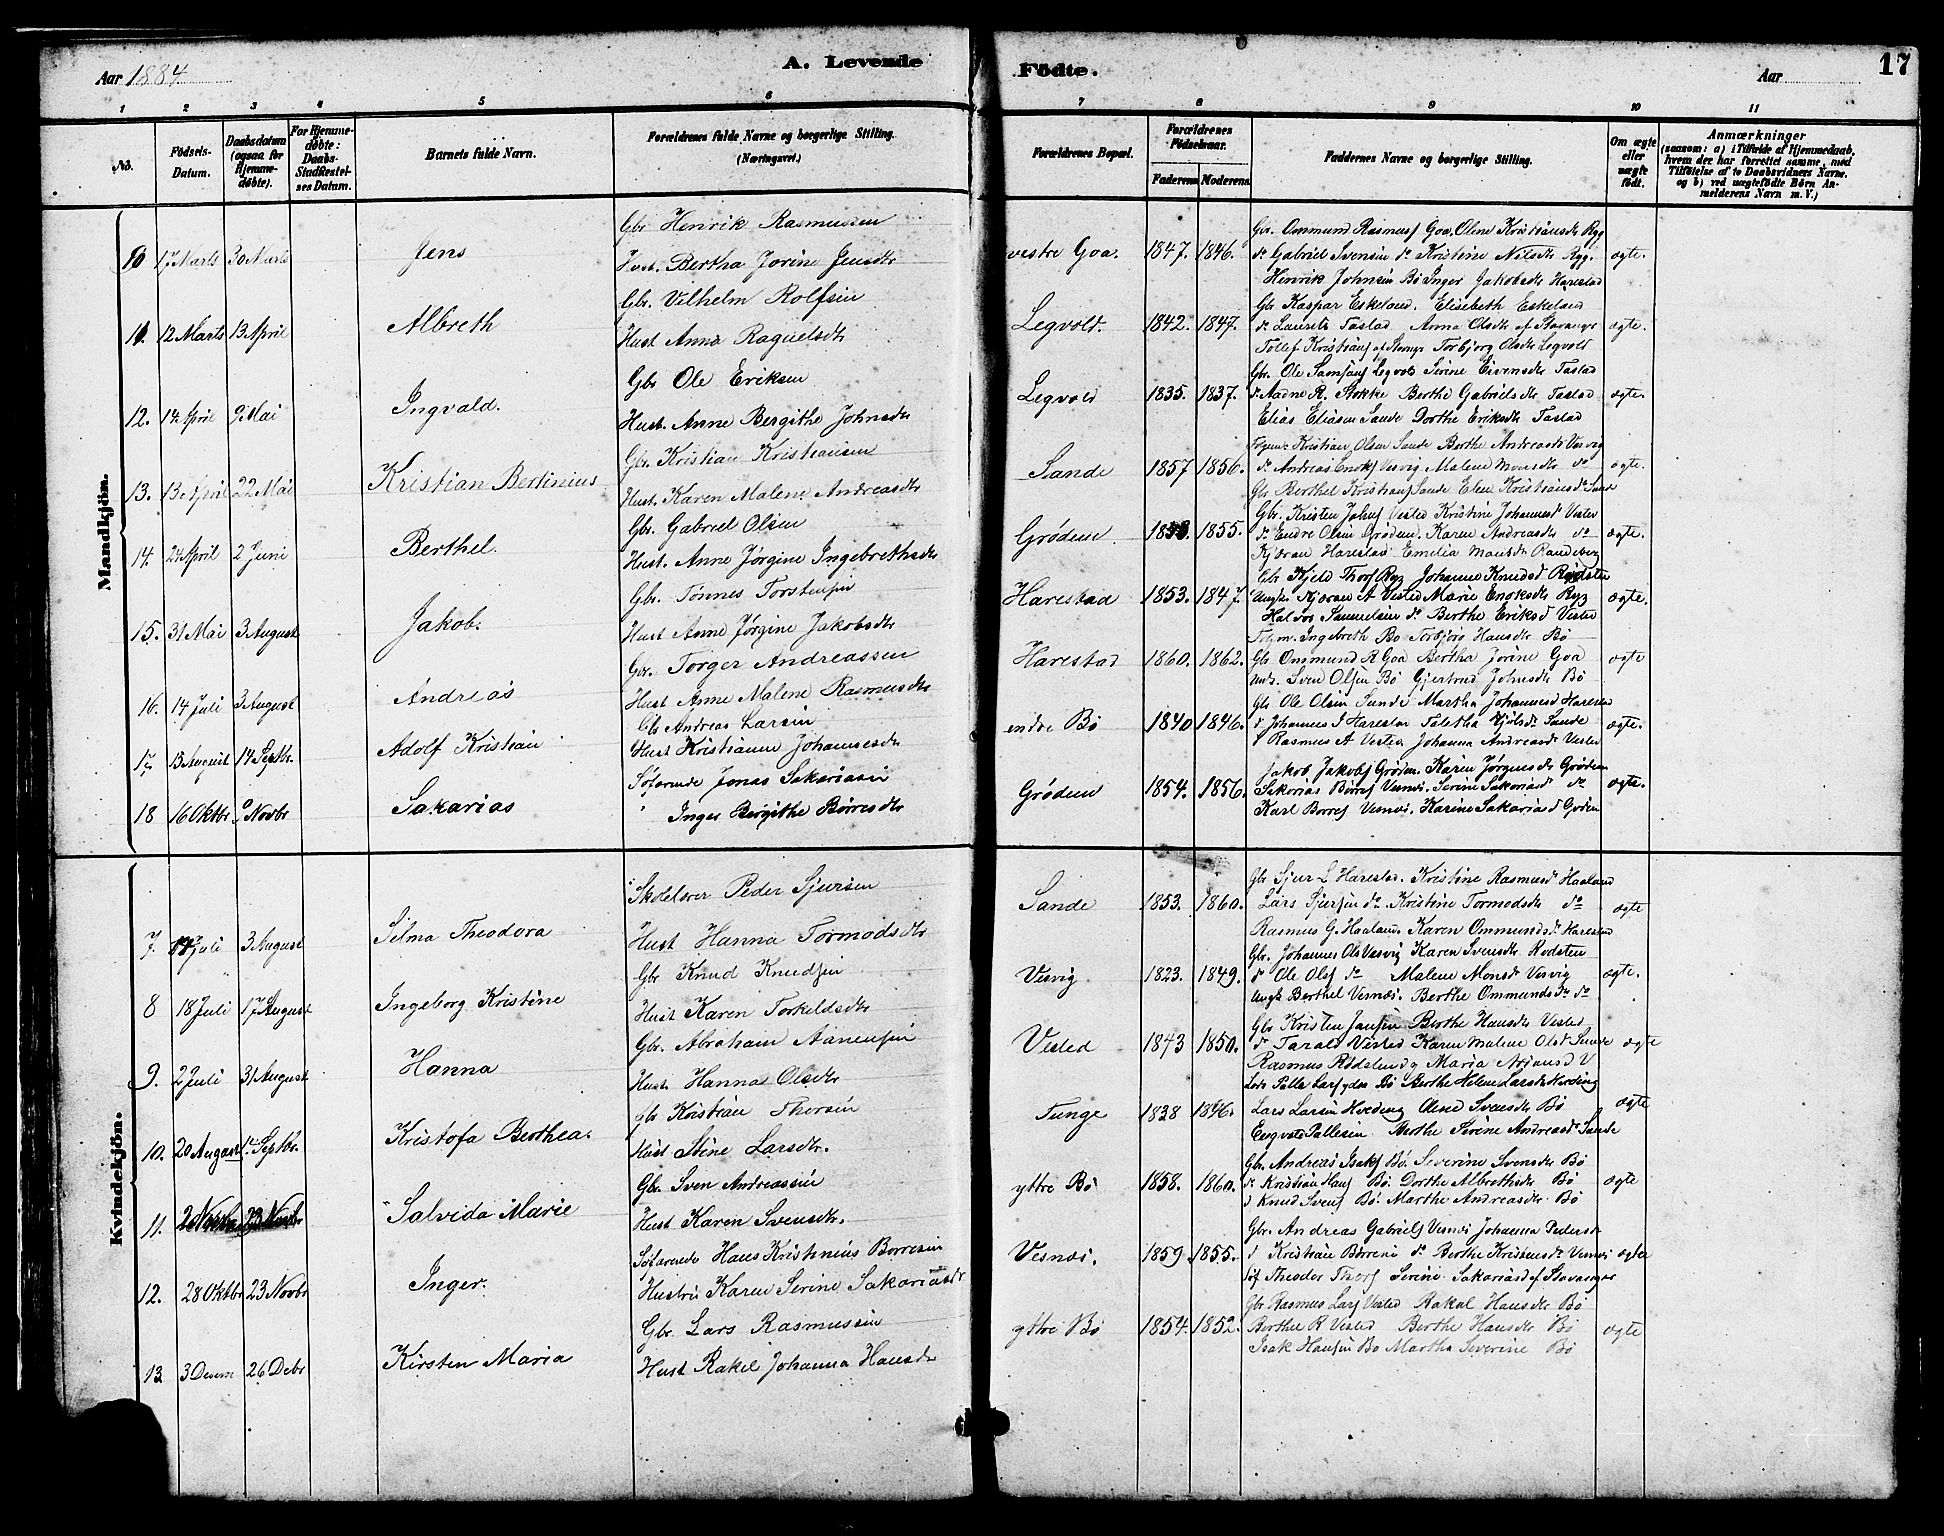 Aar 1884
A. Levende Födte.
Aar
17
1 2 3 4 5 6 7 8 9 10 11
No.
Födsels-Datum.
Daabsdatum (ogsaa for Hjemme-døbte).
For Hjemme-døbte: Daabs-Stadfæstel-ses Datum.
Barnets fulde Navn.
Forældrenes fulde Navne og borgerlige Stilling. (Næringsvei.)
Forældrenes Bopæl.
Forældrenes Födselsaar.
Faderens Moderens
Faddernes Navne og borgerlige Stilling.
Om ægte eller uægte födt.
Anmærkninger
(saasom: a) i Tilfælde af Hjemmedaab, hvem der har forrettet samme, med Tilföielse af to Daabsvidners Navne, og b) ved uægtefödte Börn An-melderens Navn m. V.)
Mandkjön.
10 17 Marts 30 Marts Jens
Gbr Henrik Rasmussen
Hust. Bertha Jorine Jensdtr
vestre Goa. 1847. 1846. ægte.
Gbr. Ommund Rasmusf Goa, Oline Kristiansdtr Ryg
do Gabriel Svensen do Kristine Nilsdtr Ryg.
Henrik Johnsen Bø Inger Jakobsdtr Harestad
11. 12 Marts 13 April Albreth
Gbr. Vilhelm Rolfsen
Hust Anna Raguelsdtr
Legvold. 1842. 1847. ægte.
Gbr Kaspar Eskeland. Elisebeth Eskeland
do Laurits Tastad Anna Olsdtr af Stavanger
Tollef Kristians af Stavngr Torbjorg Olsdtr Legvold
12. 14 April 9 Mai Ingvald.
Gbr Ole Eriksen
Hust. Anne Bergithe Johnsdtr
Legvold 1835. 1837. ægte.
Gbr. Ole Samsons Legvold Serine Eivensdtr Tastad
do Aadne R. Stokke Berthe Gabrielsdtr Tastad
Elias Eliasen Sande Dorthe Eriksdtr Tastad
13. 13 April 22 Mai Kristian Bertinius
Gbr. Kristian Kristiansen
Hust. Karen Malene Andreasdtr
Sande 1857 1856. ægte.
Kristian Olsen Sande Berthe Andreasdtr Vesvig
do Andreas Enoksf Vesvig Malene Monsdtr do
Gbr Berthel Kristiansf Sande Elen Kristiansdtr Sande
14. 24 April 2 Juni Berthel.
Gbr. Gabriel Olsen
Hust. Anne Jørgine Ingebrethsdtr
Grødem. 1855. ægte.
Gbr. Kristen Jahnsf Vested Kristine Johannesd Vested
do Endre Olsen Grødem. Karen Andreasdtr do
Kjøran Harestad Emelia Monsdtr Randeberg
15. 31 Mai 3 August Jakob.
Gbr. Tønnes Torstensen
Hust Anne Jørgine Jakobsdtr
Harestad 1853. 1847. ægte.
Gbr Kjeld Thorsf Ryg Johanne Knudsd Rødsten
Ungk. Kjøran A Vested Marie Enoksdtr Ryg
Halvor Samuelsen do Berthe Eriksd Vested
16. 14 Juli 3 August Andreas
Gbr. Torger Andreassen
Hust Anne Malene Rasmusdtr
Harestad 1860. 1862. ægte
Ingebreth Bø Torbjorg Hansdtr Bø
Gbr Ommund R Goa Bertha Jorine Goa
Sven Olsen Bø Gjertrud Johnsdtr Bø
17 13 August 14 Septbr. Adolf Kristian
Gbr Andreas Larsen
Hust Kristianne Johannesdtr
endre Bø 1840 1846. ægte.
Gbr Ole Olsen Sande Martha Johannesd Harestad
d Johannes J Harestad Taletha Kjelsdr Sande
d Rasmus A Vested Johanna Andreasdr Vested
18 16 Oktbr 9 Novbr Sakarias
Søfarende Jonas Sakariasen
" Inger Bergithe Børresdtr
Grødem 1854. 1856. ægte.
Jakob Jakobsf Grødem. Karen Jørgensdtr Grødem
Sakarias Børresf Vesnæs. Serine Sakariasd do
Karl Borresf Vesnæs. Karine Sakariasd Grødem
Kvindekjön.
7 17 Juli 3 August Silma Theodora
Skolelærer Peder Sjursen
Hust Hanna Tormodsdtr
Sande 1853. 1860. ægte
Gbr Sjur L Harestad. Kristine Rasmusd Haaland
Lars Sjursen do Kristine Tormodsdtr do
Rasmus G. Haaland. Karen Ommundsdtr Harestad
8 18 Juli 17 August Ingeborg Kristine
Gbr Knud Knudsen
Hust Karen Torkeldsdtr
Vesvig 1823. 1849. ægte.
Gbr. Johannes Ols Vesvig Karen Svensdtr Rodsten
do Ole Olsf do Malene Monsd Vesvig
Ungk Berthel Vesnæs. Berthe Ommundsdtr do
9. 2 Juli 31 August Hanna
Gbr. Abraham Aanensen
Hust. Hanna Olsdtr
Vested 1843 1850. ægte
Gbr Kristen Jansen Berthe Hansdtr Vested
do Tarald Vested Karen Malene Olsd Sande
10. 20 August Septbr. Kristofa Berthea.
gbr Kristian Thorsen
Hust Stine Larsdtr.
Tunge 1838 1846. ægte
Lars Larsen Hveding Olene Svensdtr Bø
Engvald Pallesen Berthe Serine Andreasdtr Sande
11. Salvida Marie
Gbr. Sven Andreassen
Hust Karen Svensdtr.
yttre Bø 1858. 1860. ægte
Gbr. Andreas Isaksf Bø. Severine Svensdtr Bø
do Kristian Hansf Bø. Dorthe Albrethsdtr Bø
d Knud Svensf Bø. Marthe Andreasdtr. Bø
12. 28 Oktbr 23 Novbr Inger.
Søfarende Hans Kristinius Børresen
Hustru Karen Serine Sakariasdtr
Vesnæs. 1859. 1855. ægte
Gbr. Andreas Gabrielsf Vesnæs Johanna Pedersdtr
d Kristian Børresen do Berthe Kristensdtr Vesnæs
Søf Theodor Thorsf Serine Sakariasd af Stavanger
13 3 Decem 26 Debr Kirsten Maria
Gbr. Lars Rasmussen
Hust Rakel Johanna Hansdr
yttre Bø 1854. 1852. ægte
Gbr Rasmus Larsf Vested Rakel Hansdtr Bø
Berthel R Vested Berthe Hansdtr Bø
Isak Hansen Bø Martha Severine Bø